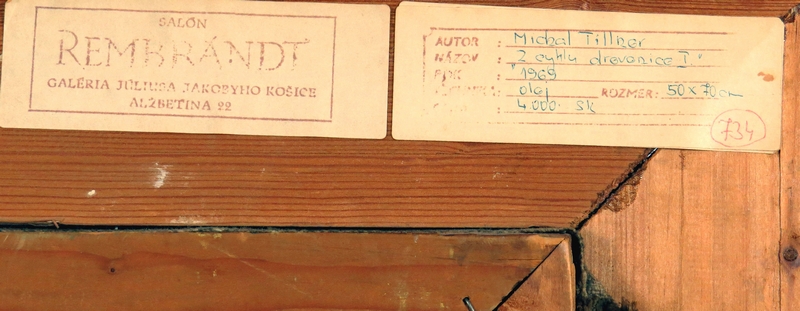 SALÓN
REMBRANDT
GALÉRIA JÚLIUSA JAKOBYHO KOŠICE
ALŽBETINA 22
AUTOR : Michal Tillner
NÁZOV : Z cyklu drevenice I"
ROK : "1969
: olej ROZMER: 50 x 70 cm
: 4.000.- Sk
734